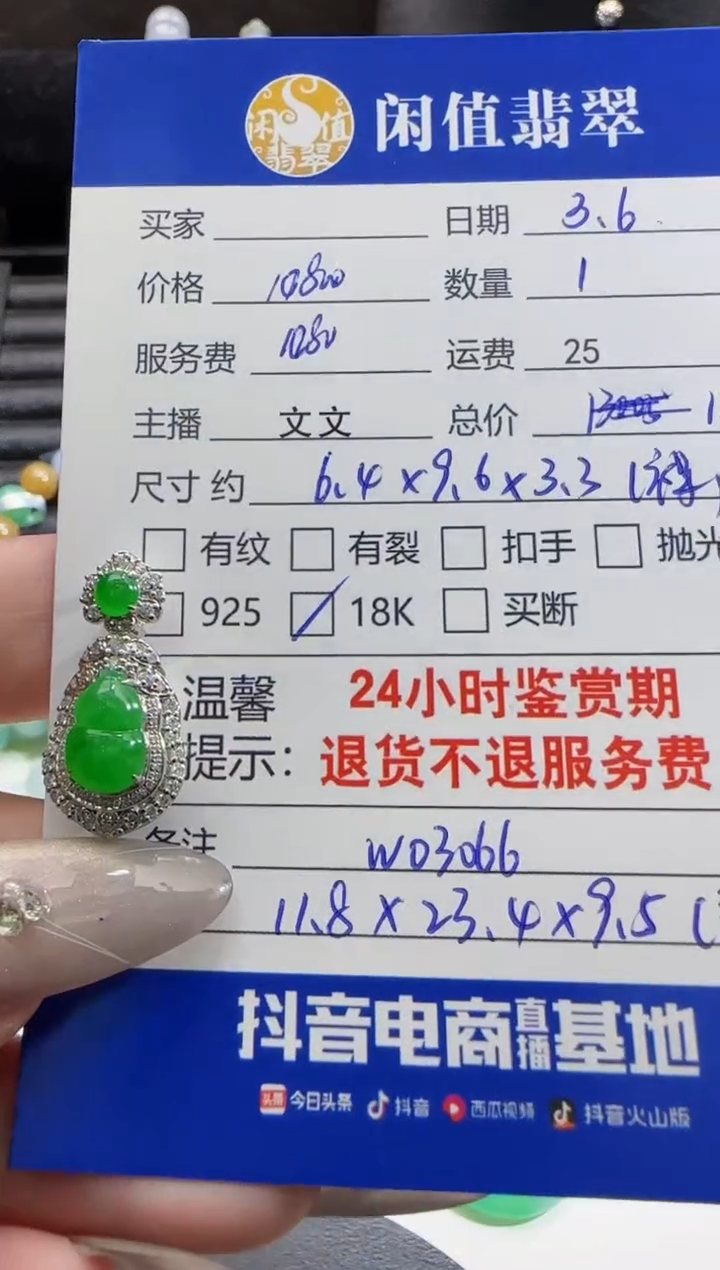 闲值翡翠
闲值翡翠
买家 日期 3.6
价格 10800 数量 1
服务费 1080 运费 25
主播 文文 总价
尺寸 约 6.4×9.6×3.3 (裸
有纹 有裂 扣手 抛光
925 18K 买断
温馨 24小时鉴赏期
提示: 退货不退服务费
备注 W03066
11.8×23.4×9.5 (
抖音电商直播基地
头条 今日头条 抖音 西瓜视频 抖音火山版